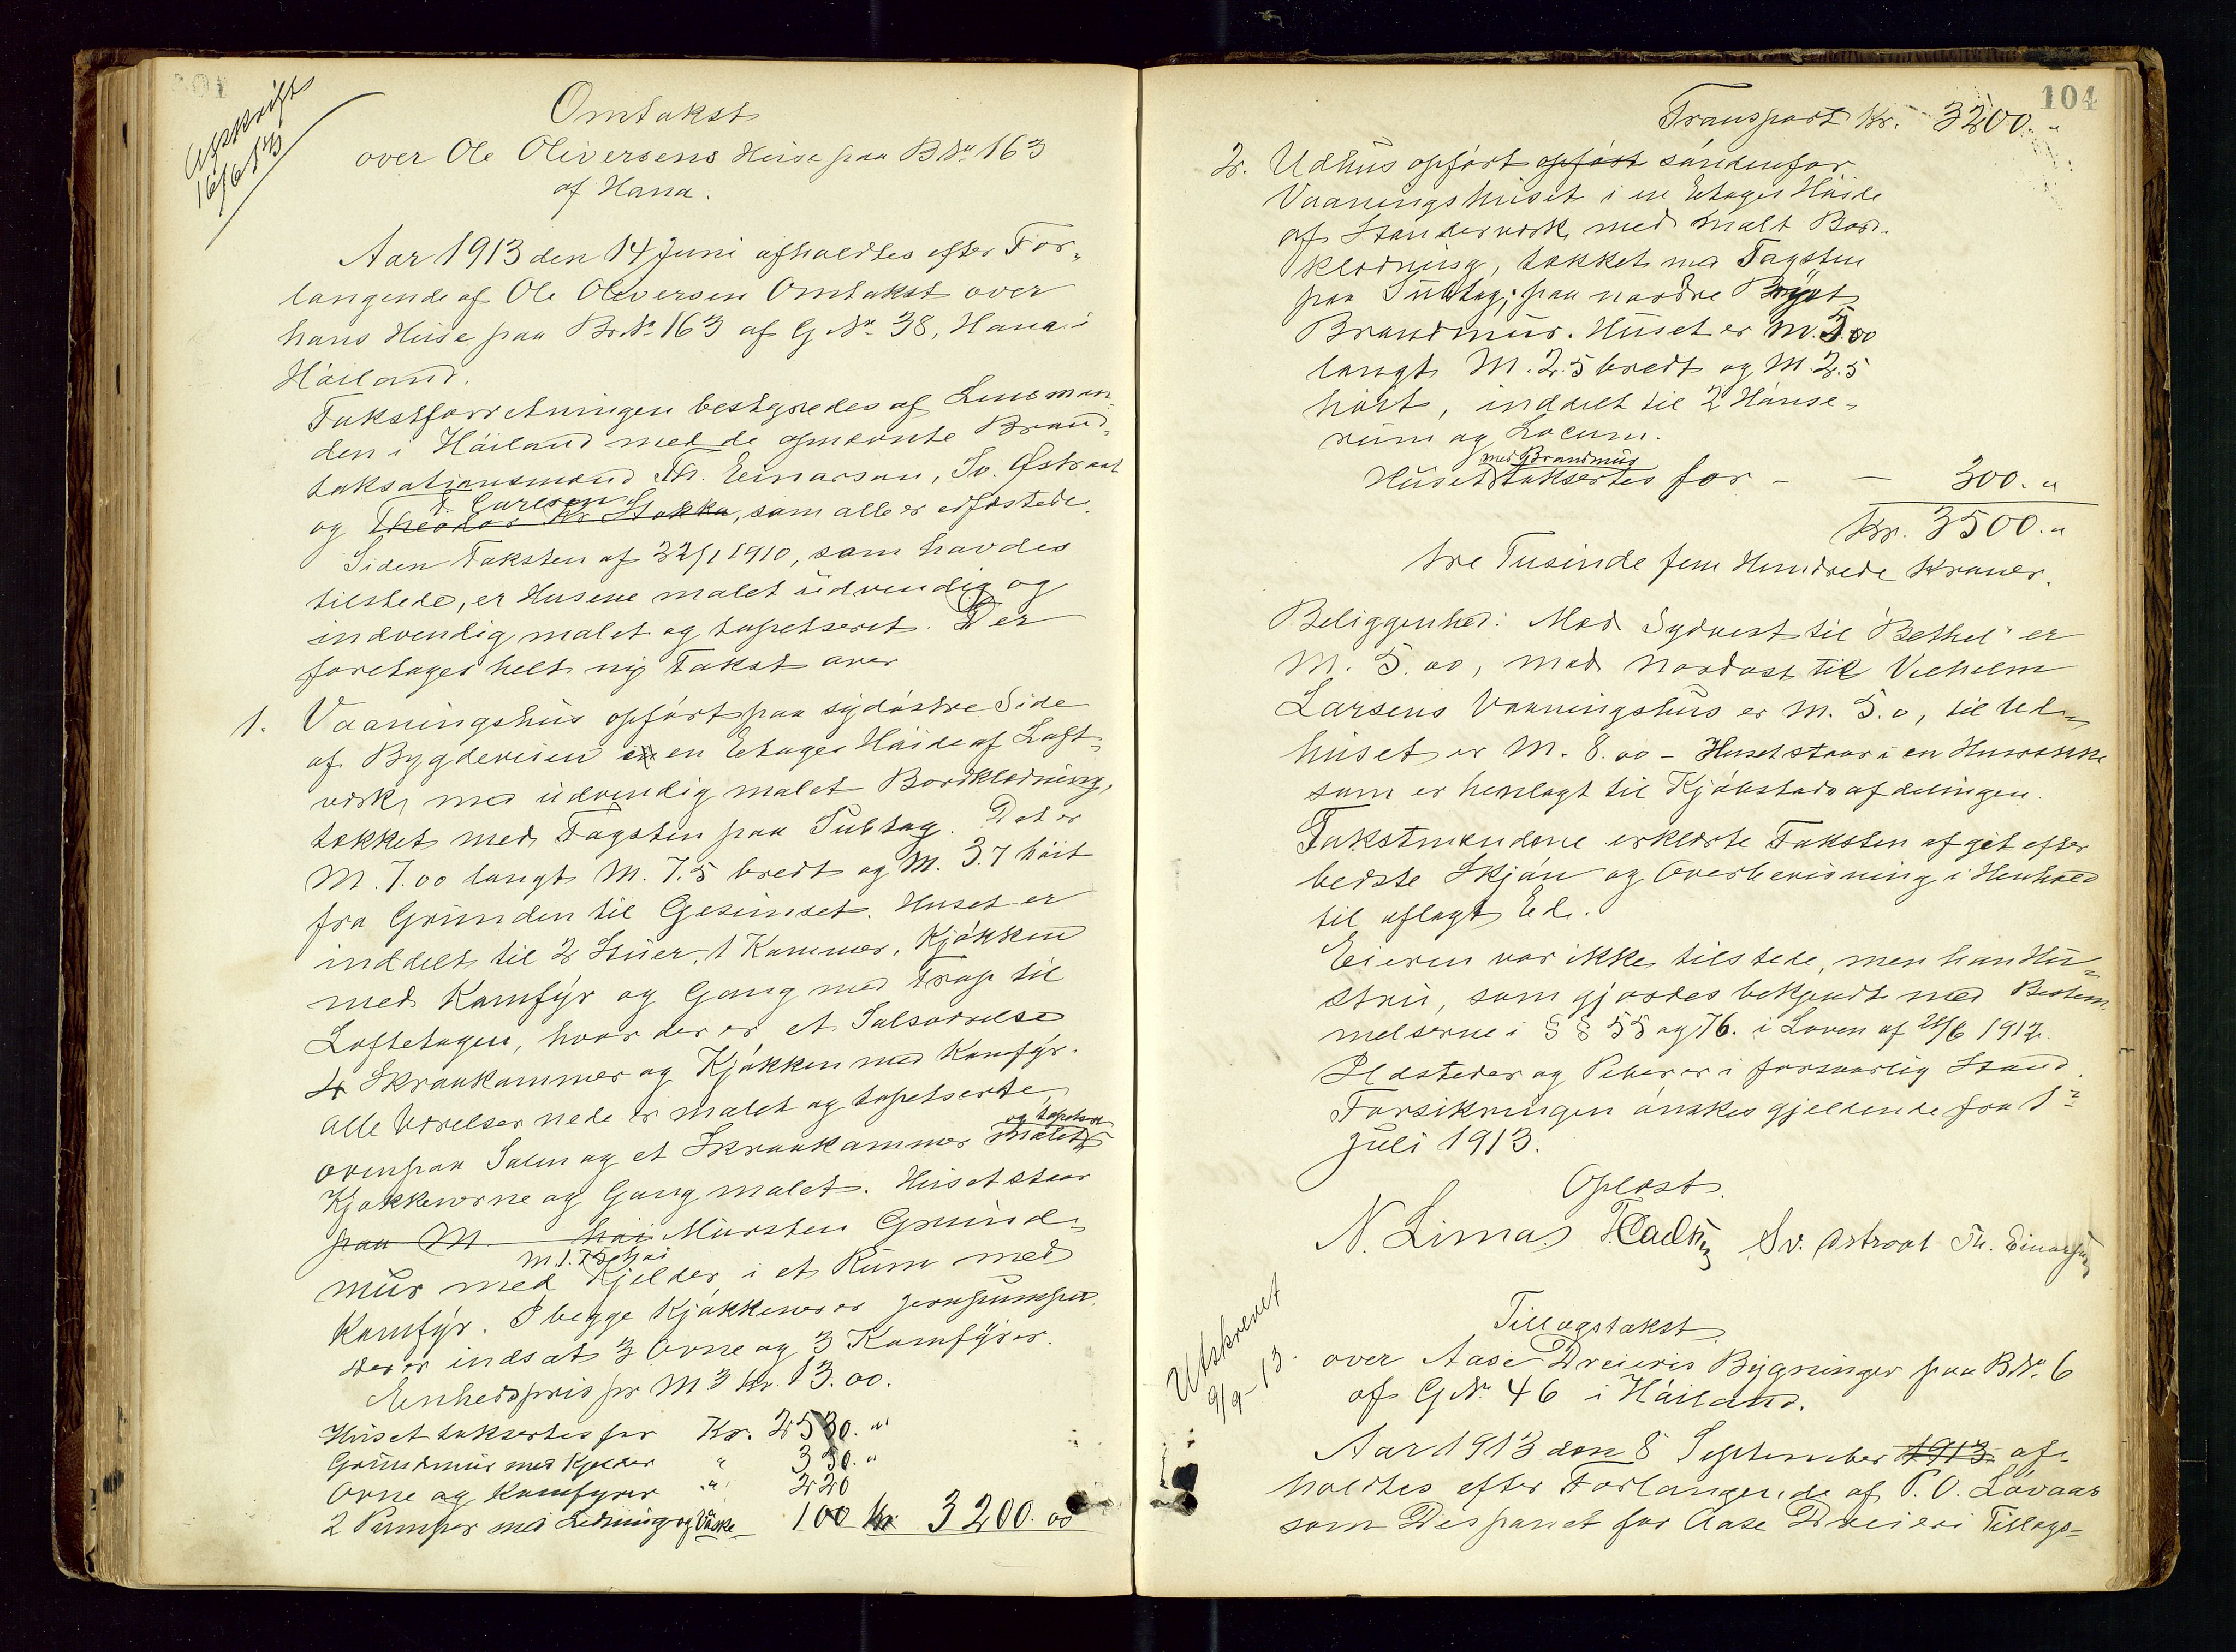 Afskrift
16/6 1913
Omtakst
over Ole Oliversens Huse paa B.Nr. 163
af Hana.
Aar 1913 den 14 Juni afholdtes efter For-
langende af Ole Oliversen Omtakst over
hans Huse paa Br.Nr. 163 af G.Nr. 38, Hana i
Høiland.
Takstforretningen bestyredes af Lensman-
den i Høiland med de opnævnte Brand-
taksationsmænd Th. Einarsen, Sv. Østraat
T. Carlsen
og Theodor Kr. Stokka, som alle er edfæstede.
Siden Taksten af 22/1 1910, som havdes
tilstede, er Husene malet udvendig og
indvendig malet og tapetseret. Der
foretages helt ny Takst over
1. Vaaningshus opført paa sydøstre Side
af Bygdeveien i en Etages Høide af Laft-
værk, med udvendig malet Bordklædning,
tækket med Tagsten paa Subtag. Det er
M. 7.00 langt M. 7.5 bredt og M. 3.7 høit
fra Grunden til Gesimset. Huset er
inddelt til 2 Stuer, 1 Kammer, Kjøkken
med Komfyr og Gang med Trap til
Loftetagen, hvor der er et Salsværelse
4 Skraakammer og Kjøkken med Komfyr.
Alle Værelser nede er malet og tapetserte,
og tapetser
ovenpaa Salen og et Skraakammer malet
Kjøkkenerne og Gang malet. Huset staar
paa M. høi Mursten Grund-
M. 1.75 høi
mur med Kjelder i et Rum med
Komfyr. I begge Kjøkkener er Jernpumper.
Der er indsat 3 Ovne og 3 Komfyrer.
Enhedspris pr M3 Kr. 13.00.
Huset taksertes for Kr. 2530. "
Grundmur med Kjelder " 350. "
Ovne og Komfyrer " 220
2 Pumper med Ledning og Vaske 100 Kr. 3200.00
104
Transport Kr. 3200. "
2. Udhus opført opført søndenfor
Vaaningshuset i en Etages Høide
af Stenderværk med malt Bord-
klædning, tækket med Tagsten
paa Subtag; paa nordre
Brandmur. Huset er M. 5.00
langt M. 2.5 bredt og M. 2.5
høit, inddelt til 2 Hønse-
rum og Locum.
med Brandmur
Huset taksertes for - - 300. "
Kr. 3500. "
tre Tusinde fem Hundrede Kroner.
Beliggenhed: Mod Sydvest til "Bethel" er
M. 5.00, mod Nordøst til Vilhelm
Larsens Vaaningshus er M. 5.0, til Ud-
huset er M. 8.00 - Huset staar i en Husrække
som er henlagt til Kjøbstadsafdelingen.
Takstmændene erklærte Taksten afgit efter
bedste Skjøn og Overbevisning i Henhold
til aflagt Ed.
Eieren var ikke tilstede, men han Hu-
stru, som gjordes bekjendt med Bestem-
melserne i §§ 55 og 76. i Loven af 21/6 1912.
Ildsteder og Piber er i forsvarlig Stand.
Forsikringen ønskes gjeldende fra 1ste
Juli 1913.
Oplæst.
N. Limas T. Carlsen Sv. Østraat Th. Einarsen
Utskrevet
9/9-13.
Tillægstakst
over Aase Dreieris Bygninger paa B.Nr. 6
af G.Nr. 46 i Høiland.
Aar 1913 den 8 September 1913 af-
holdtes efter Forlangende af P. O. Lövaas
som Disponet for Aase Dreieri Tillægs-